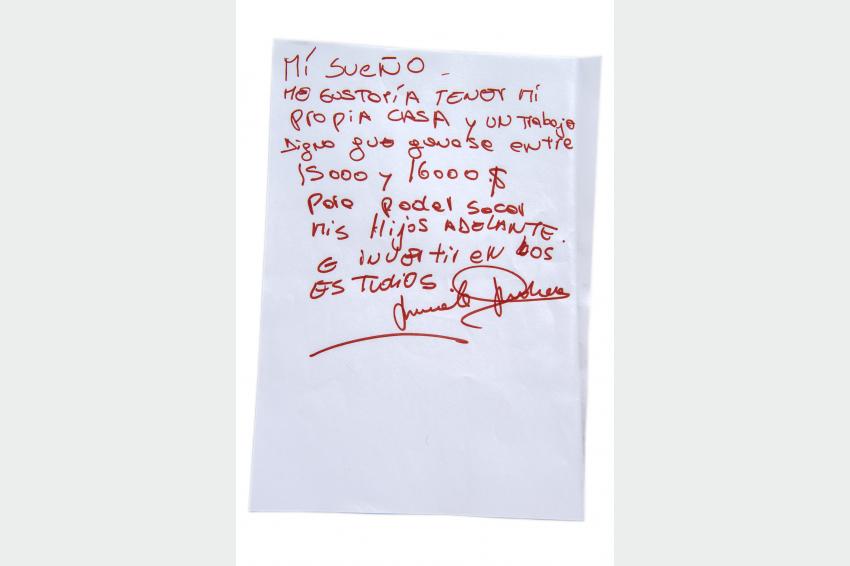 Mi SUEÑO -
Me gustaría tener mi
propia CASA y un trabajo
Digno que ganase entre
15000 y 16000 $
Para poder sacar
mis Hijos ADELANTE.
e invertir en LOS
ESTUDIOS.